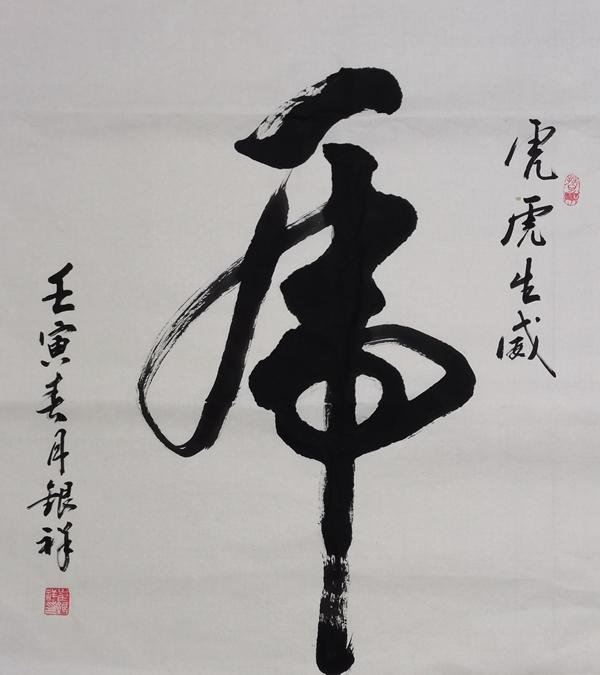 虎虎生威
虎
壬寅春月银祥